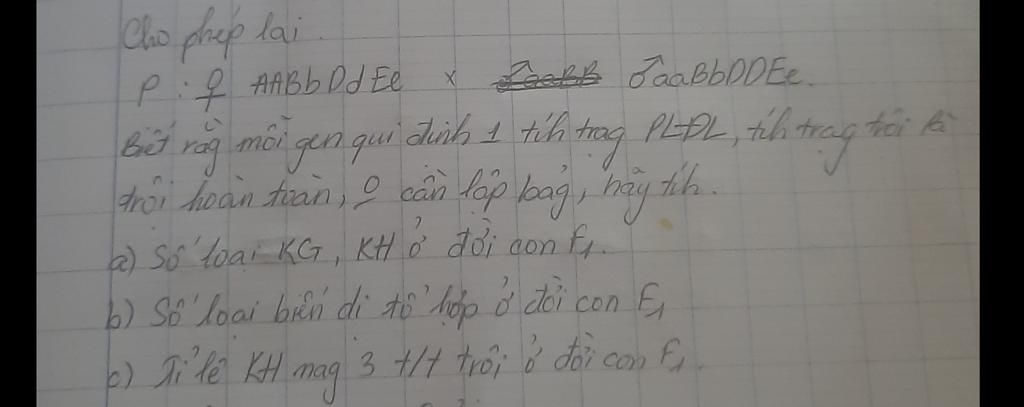 Cho phép lai.
P : ♀ AABbDdEe × ♂aaBbDDEe.
Biết rằg mỗi gen qui định 1 tíh trạg PLĐL, tíh trạg trội là
trội hoàn toàn, o cần lập bảg, hãy tíh.
a) Số loại KG, KH ở đời con F1.
b) Số loại biến dị tổ hợp ở đời con F1
c) Tỉ lệ KH mag 3 t/t trội ở đời con F1.